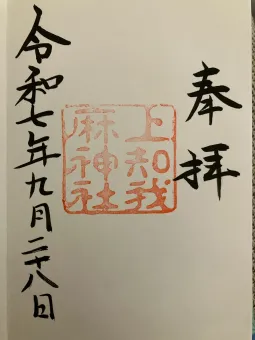 奉拝
上知我
麻神社
令和七年九月二十八日